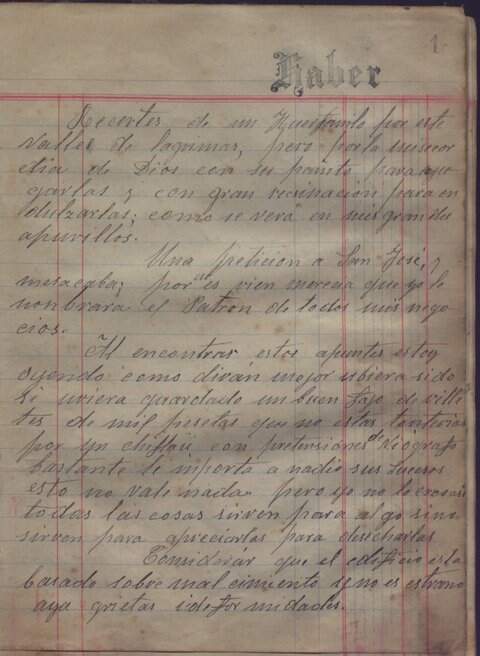 1
Haber
Recortes de un Huerfanito por este
valles de lagrimas, pero por la miseor
dia de Dios con su panito para en
garlas y con gran resinacion para en
dulzarlas; como se verá en mis grandes
apurillos.
Una peticion a San José, y
me sacaba; por es vien merecia que yo le
nonbrara el Patron de todos mis nego
cios.
Al encontrar estos apuntes estoy
oyendo como diran mejor ubiera sido
si uviera guardado un buen fajo de ville
tes de mil pesetas que no estas tonterias
por un chiflaü con pretensiones de
bastante le importa a nadie sus
esto no vale nada pero yo no lo
todas las cosas sirven para algo sino
sirven para apreciarlas para desecharlas
Considerár que el edificio esta
basado sobre mal cimiento si no es estrano
aya grietas i deformidades.